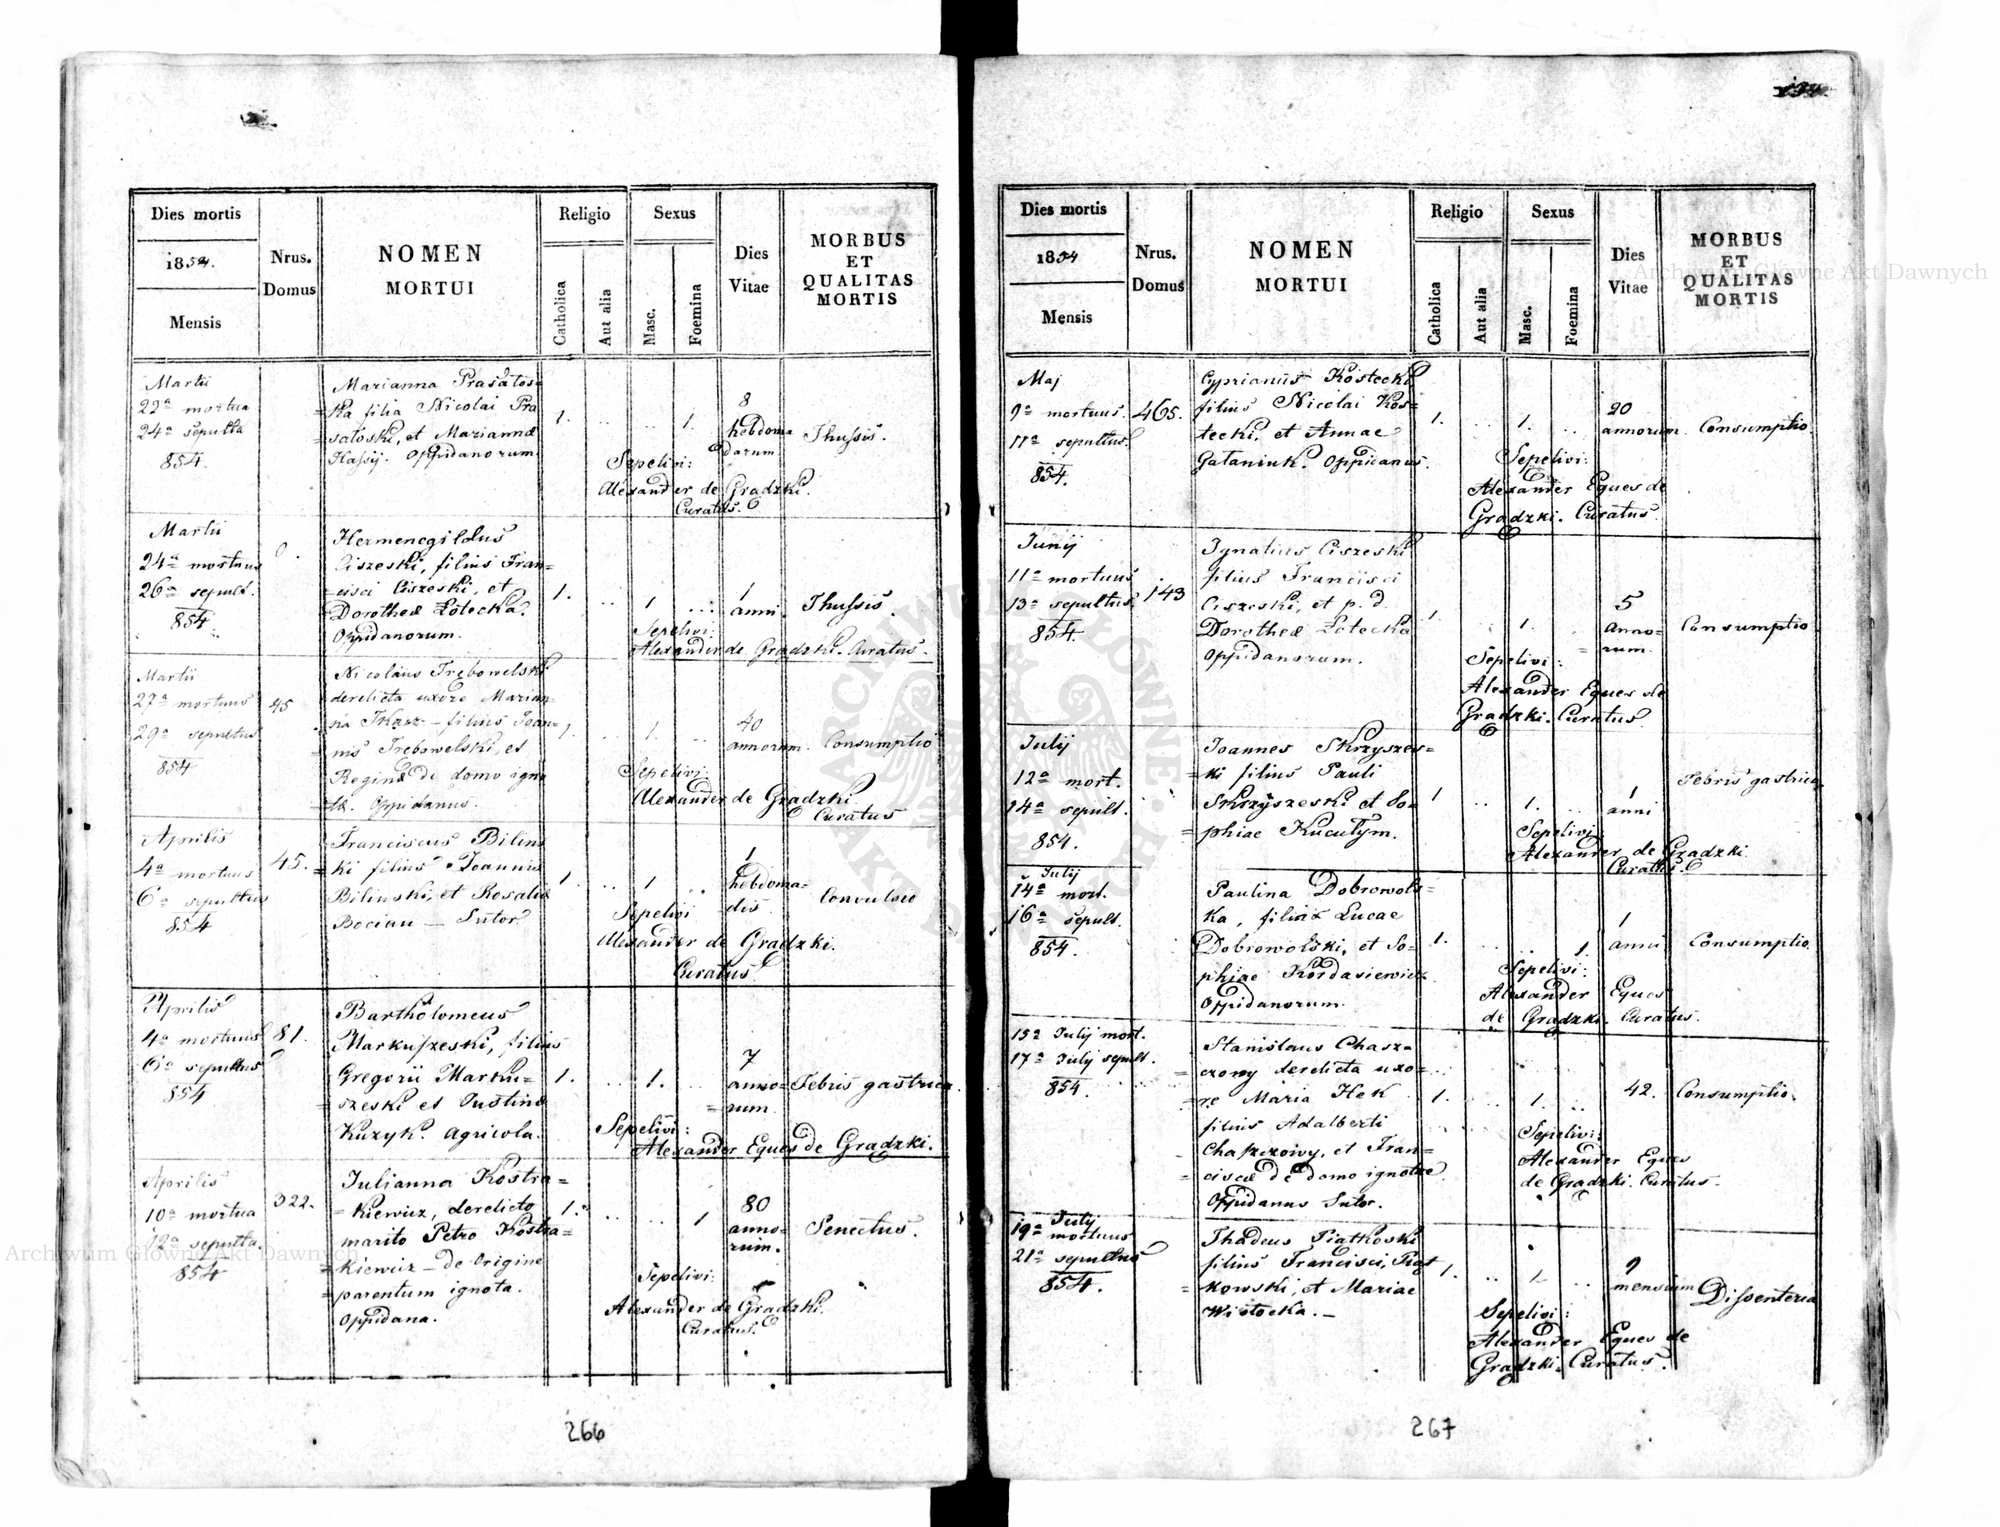 Dies mortis
1854.
Mensis
Nrus.
Domus
NOMEN
MORTUI
Religio
Catholica
Aut alia
Sexus
Masc.
Foemina
Dies
Vitae
MORBUS
ET
QUALITAS
MORTIS
Martii
22a mortua
24a sepulta
854.
Marianna Prasatos=
=ka filia Nicolai Pra
=satoski, et Mariannæ
Oppidanorum
1.
1.
8
hebdoma
darum
Thussis.
Sepelivi:
Alexander de Gradzki.
Curatus.
Martii
24a mortuus
26a sepult.
854.
Hermenegildus
Ciszeski, filius Fran=
=cisci Ciszeski, et
Dorotheæ Łotecka.
Oppidanorum.
1.
1
1
anni.
Thussis.
Sepelivi:
Alexander de Gradzki. Curatus.
Martii
27a mortuus
29a sepultus
854
45
Nicolaus Trebowelski
derelicta uxore Marian=
=na Tkacz – filius Joan=
=nis Trebowelski, et
Reginæ de domo igno
=ta. Oppidanus.
1.
1.
40
annorum.
Consumptio
Sepelivi:
Alexander de Gradzki
Curatus
Aprilis
4a mortuus
6a sepultus
854
45.
Franciscus Bilins
=ki filius Joannis
Bilinski, et Rosaliæ
Bocian — Sutor
1.
1
1
hebdoma=
dis.
Convulsio
Sepelivi
Alexander de Gradzki.
Curatus
Aprilis
4a mortuus
6a sepultus
854
81.
Bartholomeus
Markuszeski, filius
Gregorii Marku=
=szeski et Justina
Kuzyk. Agricola.
1.
1.
7
anno=
=rum
Febris gastrica.
Sepelivi:
Alexander Eques de Gradzki.
Aprilis
10a mortua
12a sepulta.
854
322.
Julianna Kostra=
=kiewicz, derelicto
marito Petro Kostra=
=kiewicz – de Origine
=parentum ignota.
Oppidana.
1.
1
80
anno=
rum.
Senectus.
Sepelivi:
Alexander de Gradzki.
Curatus.
266
Dies mortis
1854
Mensis
Nrus.
Domus
NOMEN
MORTUI
Religio
Catholica
Aut alia
Sexus
Masc.
Foemina
Dies
Vitae
MORBUS
ET
QUALITAS
MORTIS
Maj
9a mortuus.
11a sepultus.
854.
465.
Cyprianus Kostecki
filius Nicolai Kos=
tecki, et Annae
Gataniuk. Oppidanus.
1.
1.
20
annorum.
Consumptio.
Sepelivi:
Alexander Eques de
Gradzki. Curatus.
Junij
11a mortuus
13a sepultus.
854
143
Ignatius Ciszeski
filius Francisci
Ciszeski, et p. d.
Dorotheæ Łotecka
Oppidanorum.
1
1.
5
anno=
=rum.
Consumptio
Sepelivi:
Alexander Eques de
Gradzki. Curatus.
Julij
12a mort.
14a sepult.
854.
Joannes Skrzyszes=
=ki filius Pauli
Skrzyszeski et So=
=phiae Kuculym.
1
1.
1
anni
Febris gastrica.
Sepelivi:
Alexander de Gradzki
Curatus.
Julij
14a mort.
16a sepult.
854.
Paulina Dobrowols=
ka, filia Lucae
Dobrowolski, et So=
phiae Kordasiewicz
Oppidanorum.
1.
1.
1
anni
Consumptio.
Sepelivi:
Alexander Eques
de Gradzki. Curatus.
15a Julij mort.
17a Julij sepult.
854.
Stanislaus Chasz=
=czowy derelicta uxo=
=re Maria Hek
filius Adalberti
Chaszczowy, et Fran=
=ciscæ de domo ignotæ.
Oppidanus Sutor.
1.
1.
42.
Consumptio.
Sepelivi:
Alexander Eques
de Gradzki. Curatus.
Julij
19a mortuus
21a sepultus
854.
Thadeus Piatkoski
filius Francisci, Piąt
=kowski, et Mariae
Wistocka. –
1.
1.
9
mensium
Dissenteria
Sepelivi:
Alexander Eques de
Gradzki. Curatus.
267
Archiwum Główne Akt Dawnych
Archiwum Główne Akt Dawnych